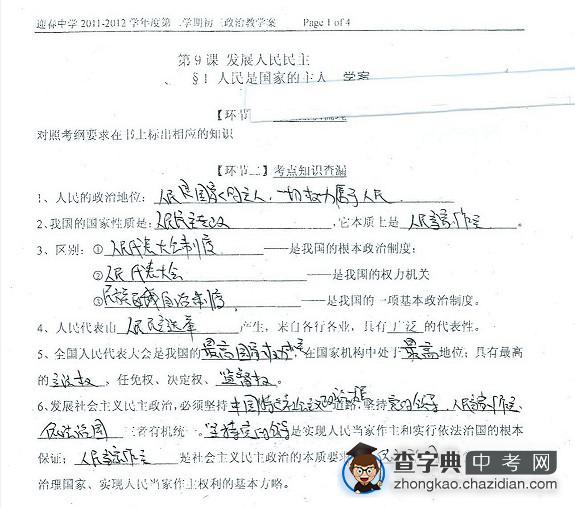 迎春中学 2011-2012 学年度第二学期初三政治教学案 Page 1 of 4
第 9 课 发展人民民主
§1 人民是国家的主人 学案
【环节
对照考纲要求在书上标出相应的知识
【环节二】考点知识查漏
1、人民的政治地位:人民是国家的主人,一切权力属于人民
2.我国的国家性质是:人民民主专政,它本质上是人民当家作主。
3、区别:①人民代表大会制度——是我国的根本政治制度;
②人民代表大会——是我国的权力机关
③民族区域自治制度。——是我国的一项基本政治制度。
4、人民代表由人民民主选举产生,来自各行各业,具有广泛的代表性。
5、全国人民代表大会是我国的最高国家权力机关,在国家机构中处于最高地位;具有最高
的立法权、任免权、决定权、监督权。
6.发展社会主义民主政治,必须坚持中国特色社会主义政治发展道路,坚持党的领导,人民当家作主,
依法治国三者有机统一。坚持党的领导是实现人民当家作主和实行依法治国的根本
保证;人民当家作主是社会主义民主政治的本质要求
治理国家、实现人民当家作主权利的基本方略。
查字典 中考网
zhongkao.chazidian.com